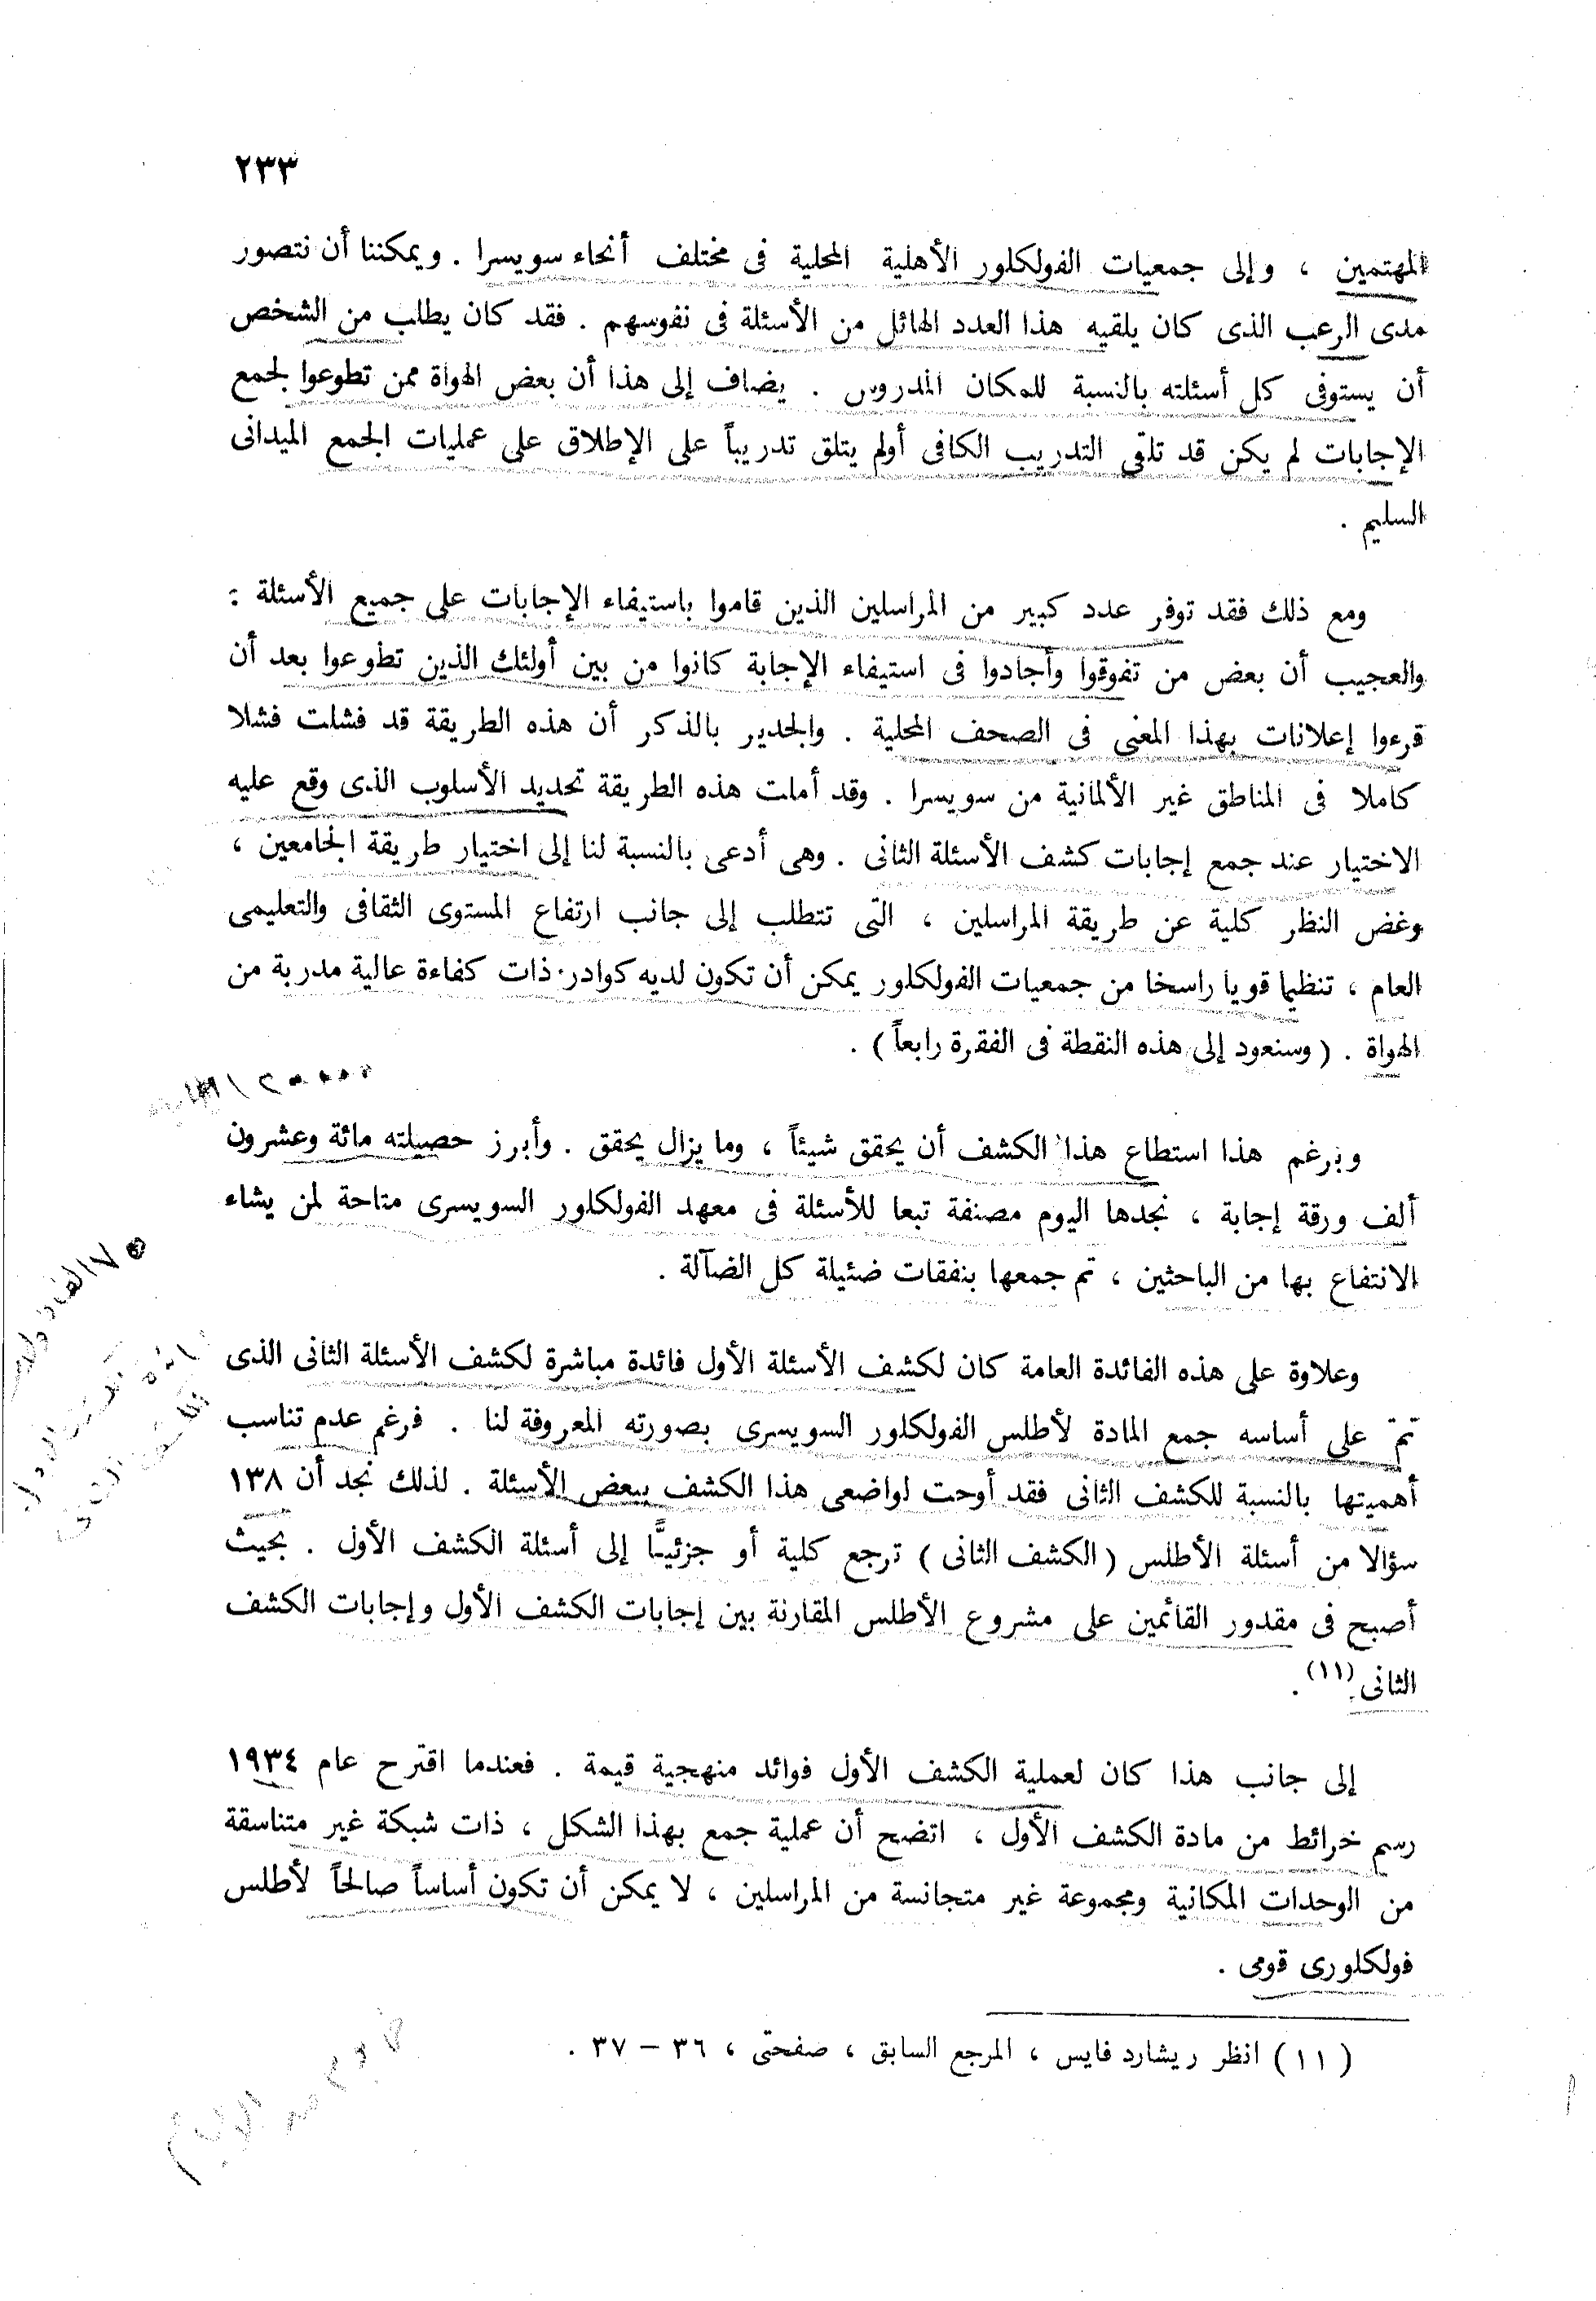 ٢٣٣
المهتمين ، وإلى جمعيات الفولكلور الأهلية المحلية فى مختلف أنحاء سويسرا . ويمكننا أن نتصور
مدى الرعب الذى كان يلقيه هذا العدد الهائل من الأسئلة فى نفوسهم . فقد كان يطلب من الشخص
أن يستوفى كل أسئلته بالنسبة للمكان المدروس . يضاف إلى هذا أن بعض الهواة ممن تطوعوا لجمع
الإجابات لم يكن قد تلقى التدريب الكافى أولم يتلق تدريباً على الإطلاق على عمليات الجمع الميدانى
السليم .
ومع ذلك فقد توفر عدد كبير من المراسلين الذين قاموا باستيفاء الإجابات على جميع الأسئلة :
والعجيب أن بعض من تفوقوا وأجادوا فى استيفاء الإجابة كانوا من بين أولئك الذين تطوعوا بعد أن
قرءوا إعلانات بهذا المعنى فى الصحف المحلية . والجدير بالذكر أن هذه الطريقة قد فشلت فشلا
كاملا فى المناطق غير الألمانية من سويسرا . وقد أملت هذه الطريقة تحديد الأسلوب الذى وقع عليه
الاختيار عند جمع إجابات كشف الأسئلة الثانى . وهى أدعى بالنسبة لنا إلى اختيار طريقة الجامعين ،
وغض النظر كلية عن طريقة المراسلين ، التى تتطلب إلى جانب ارتفاع المستوى الثقافى والتعليمى
العام ، تنظيما قويا راسخا من جمعيات الفولكلور يمكن أن تكون لديه كوادر ذات كفاءة عالية مدربة من
الهواة . (وسنعود إلى هذه النقطة فى الفقرة رابعاً) .
وبرغم هذا استطاع هذا الكشف أن يحقق شيئاً ، وما يزال يحقق . وأبرز حصيلته مائة وعشرون
ألف ورقة إجابة ، نجدها اليوم مصنفة تبعا للأسئلة فى معهد الفولكلور السويسرى متاحة لمن يشاء
الانتفاع بها من الباحثين ، تم جمعها بنفقات ضئيلة كل الضآلة .
وعلاوة على هذه الفائدة العامة كان لكشف الأسئلة الأول فائدة مباشرة لكشف الأسئلة الثانى الذى
تمّ على أساسه جمع المادة لأطلس الفولكلور السويسرى بصورته المعروفة لنا . فرغم عدم تناسب
أهميتها بالنسبة للكشف الثانى فقد أوحت لواضعى هذا الكشف ببعض الأسئلة . لذلك نجد أن ١٣٨
سؤالا من أسئلة الأطلس (الكشف الثانى) ترجع كلية أو جزئيًّا إلى أسئلة الكشف الأول . بحيث
أصبح فى مقدور القائمين على مشروع الأطلس المقارنة بين إجابات الكشف الأول وإجابات الكشف
الثانى (١١) .
إلى جانب هذا كان لعملية الكشف الأول فوائد منهجية قيمة . فعندما اقترح عام ١٩٣٤
رسم خرائط من مادة الكشف الأول ، اتضح أن عملية جمع بهذا الشكل ، ذات شبكة غير متناسقة
من الوحدات المكانية ومجموعة غير متجانسة من المراسلين ، لا يمكن أن تكون أساساً صالحاً لأطلس
فولكلورى قومى .
(١١) انظر ريشارد فايس ، المرجع السابق ، صفحتى ، ٣٦ – ٣٧ .